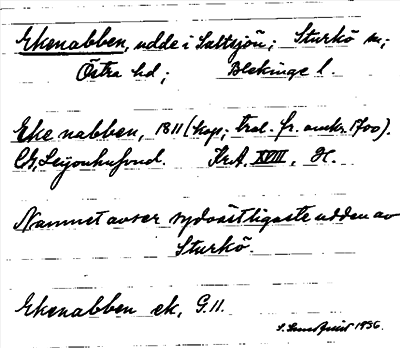 Ekenabben, udde i Saltsjön; Sturkö sn;
Östra hd; Blekinge l.
Eke nabben, 1811 (kop; tral. fr. omkr. 1700).
Leijonhufvud. KrA. XVIII, H.
Namnet avser sydvästligaste udden av
Sturkö.
Ekenabben ek, G.11.
1936.